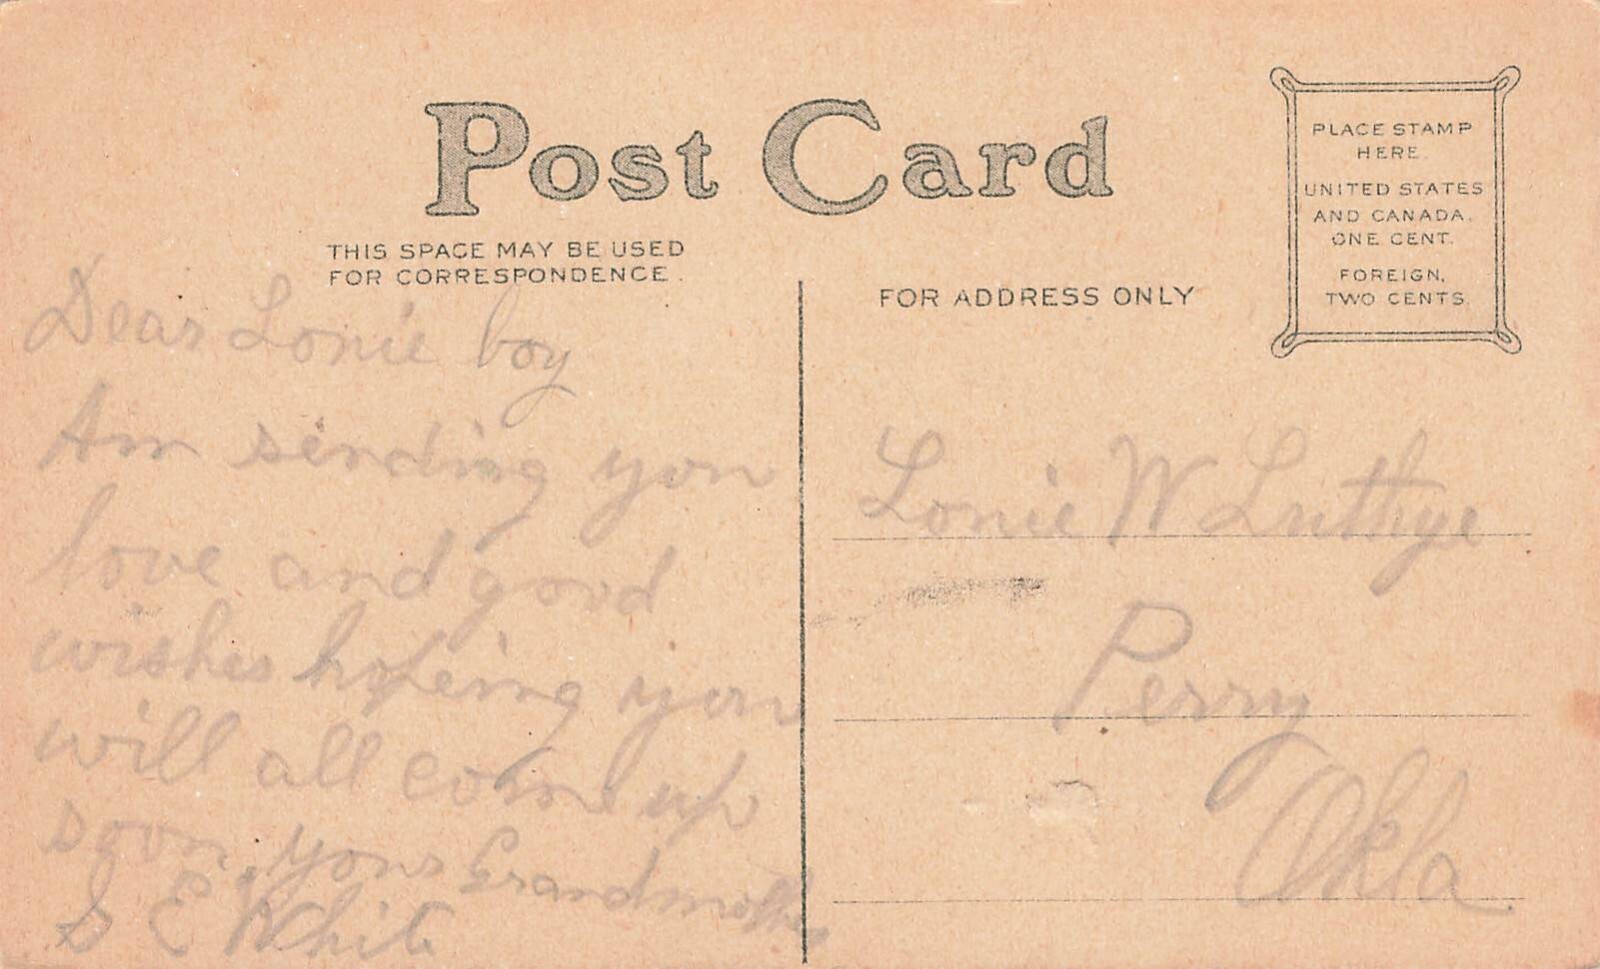 Post Card
THIS SPACE MAY BE USED
FOR CORRESPONDENCE.
FOR ADDRESS ONLY
PLACE STAMP
HERE.
UNITED STATES
AND CANADA,
ONE CENT.
FOREIGN,
TWO CENTS.
Dear Lonie boy
Am sending you
love and good
wishes hopeing you
will all come up
soon, your Grandmother
S E White
Lonie W
Perry
Okla.